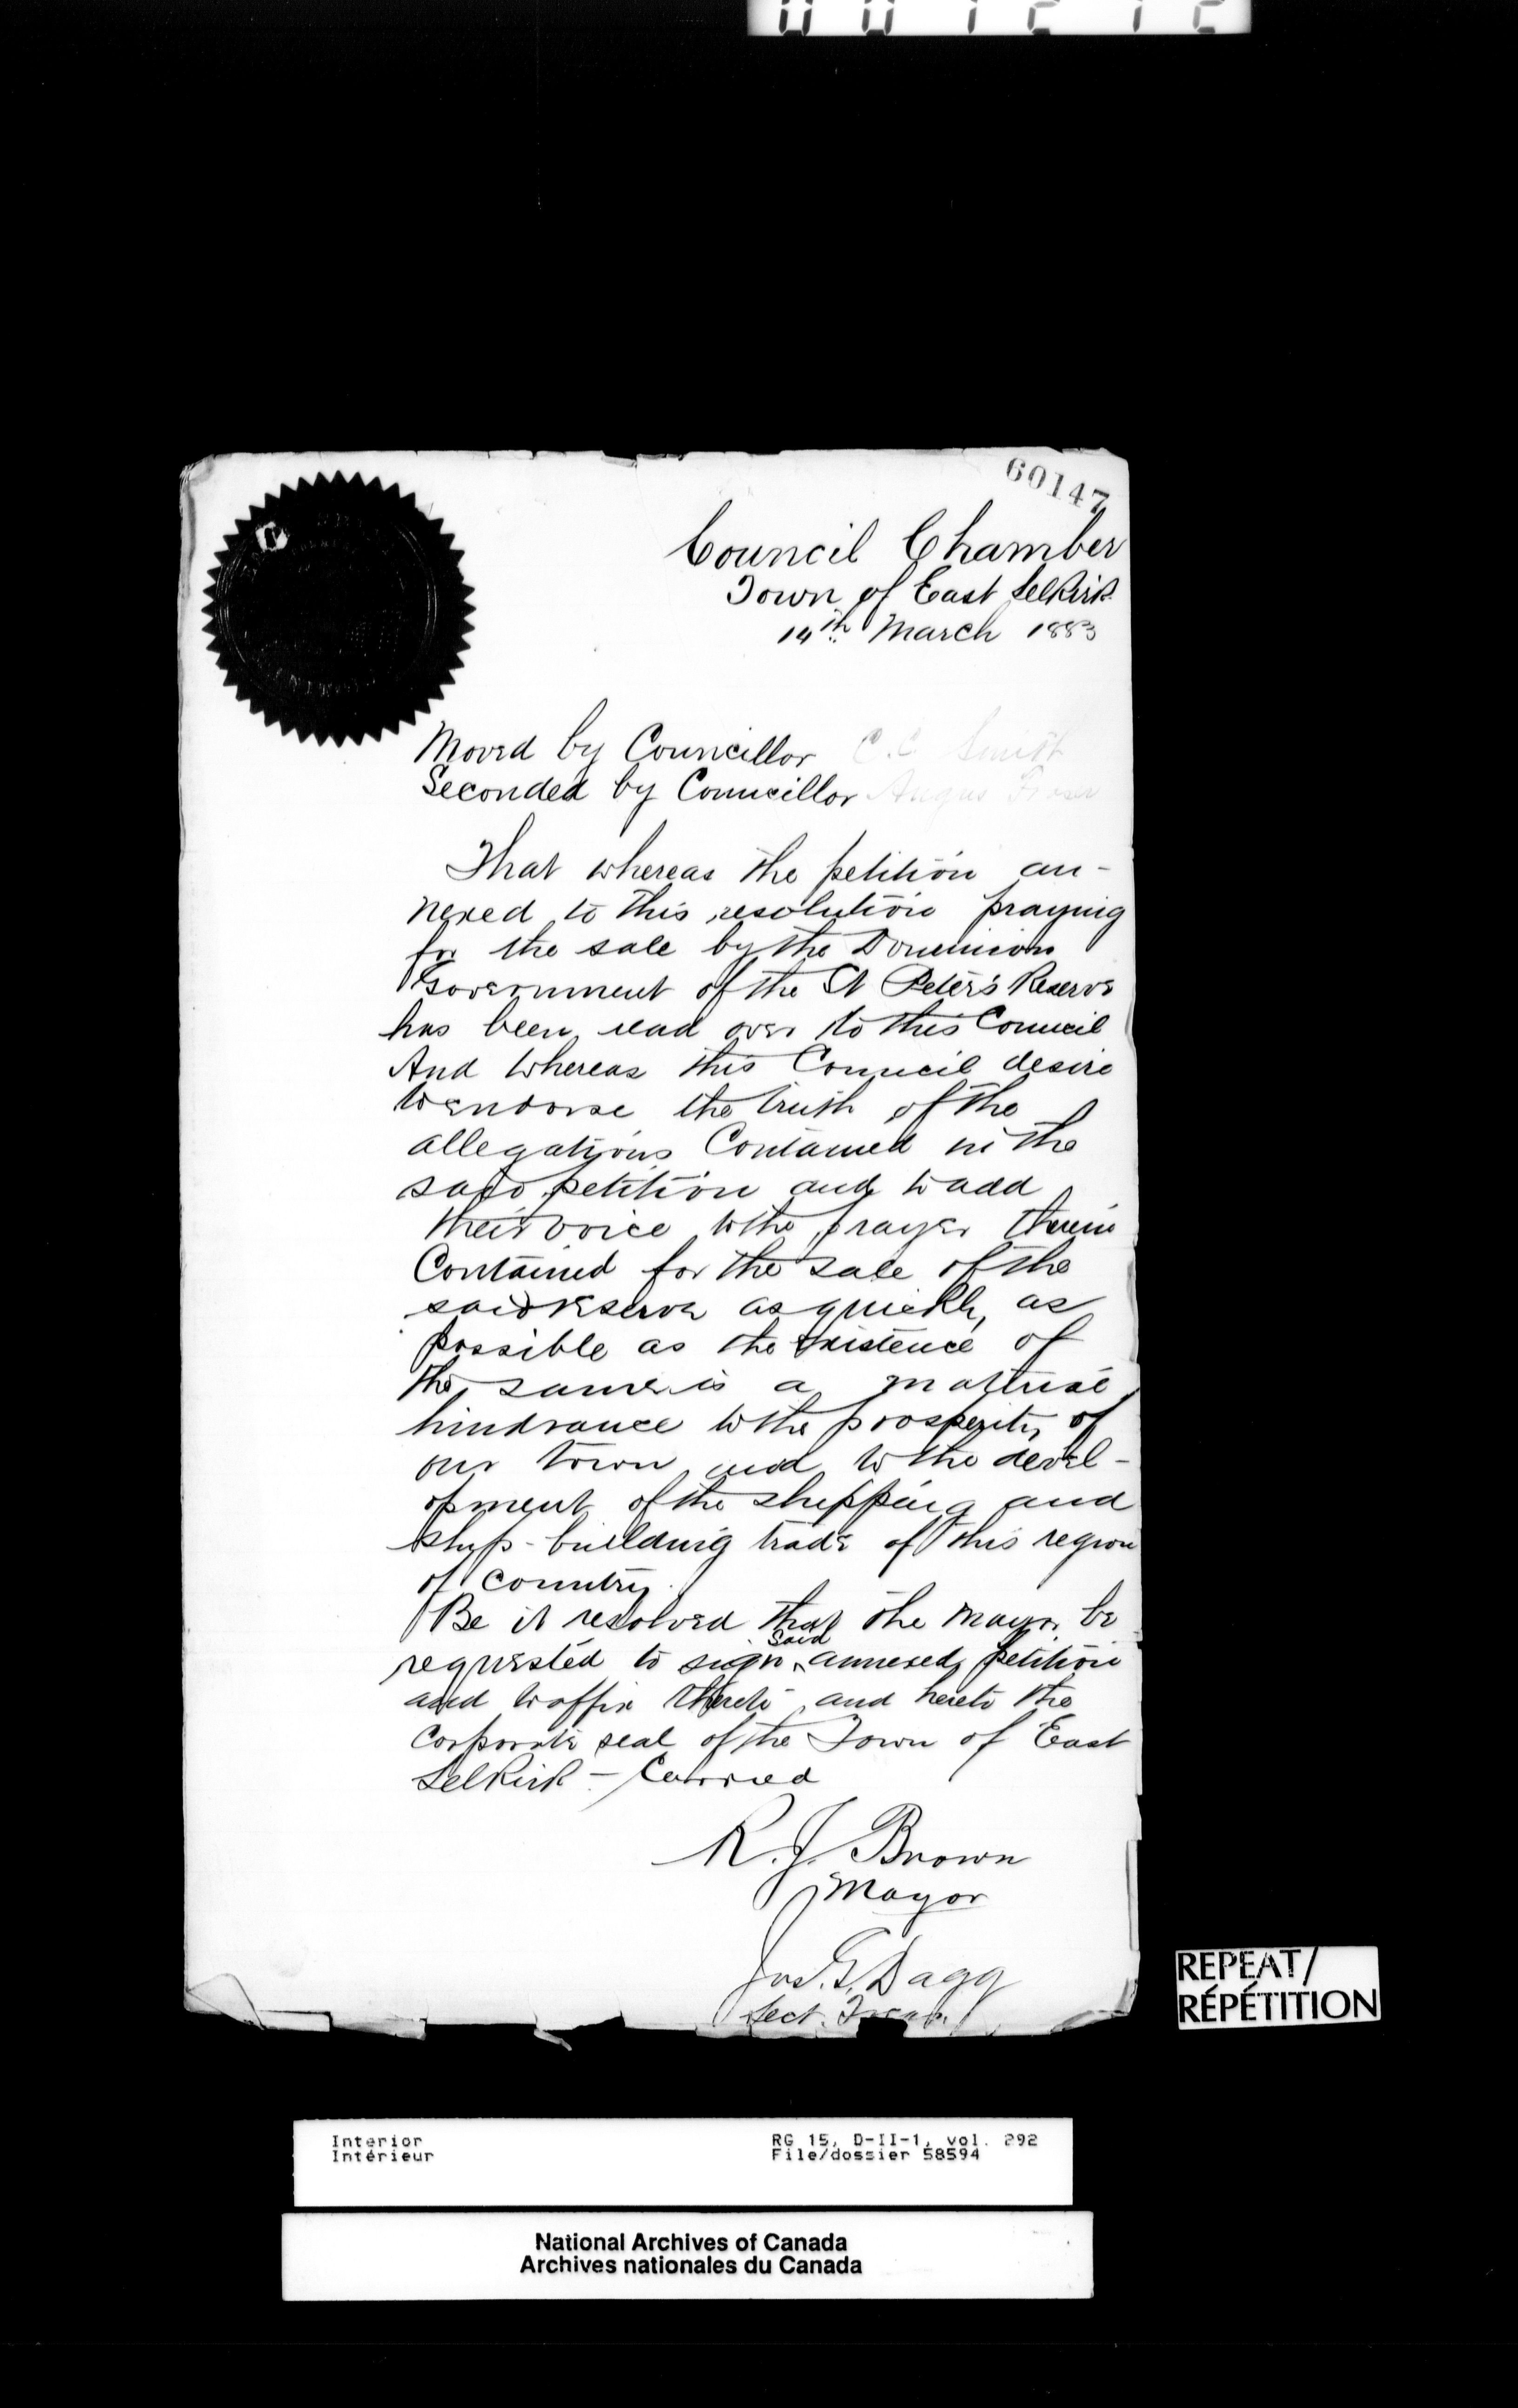 001212
60147
Council Chamber
Town of East Selkirk
14th March 1883
Moved by Councillor C.C. Smith
Seconded by Councillor Angus Fraser
That whereas the petition an-
nexed to this resolution praying
for the sale by the Dominion
Government of the St Peter's Reserve
has been read over to this Council
And whereas this Council desire
to endorse the truth of the
allegations Contained in the
said petition and to add
their voice to the prayer therein
Contained for the sale of the
said reserve as quickly as
possible as the existence of
the same is a material
hindrance to the prosperity of
our town and to the devel-
opment of the shipping and
ship-building trade of this region
of Country.
Be it resolved that the Mayor be
requested to sign said annexed petition
and to affix thereto and hereto the
Corporate seal of the Town of East
Selkirk - Carried
R.J. Brown
Mayor
Jos. G. Dagg
Sect. Treas.
REPEAT/
RÉPÉTITION
Interior RG 15, D-II-1, vol. 292
Intérieur File/dossier 58594
National Archives of Canada
Archives nationales du Canada